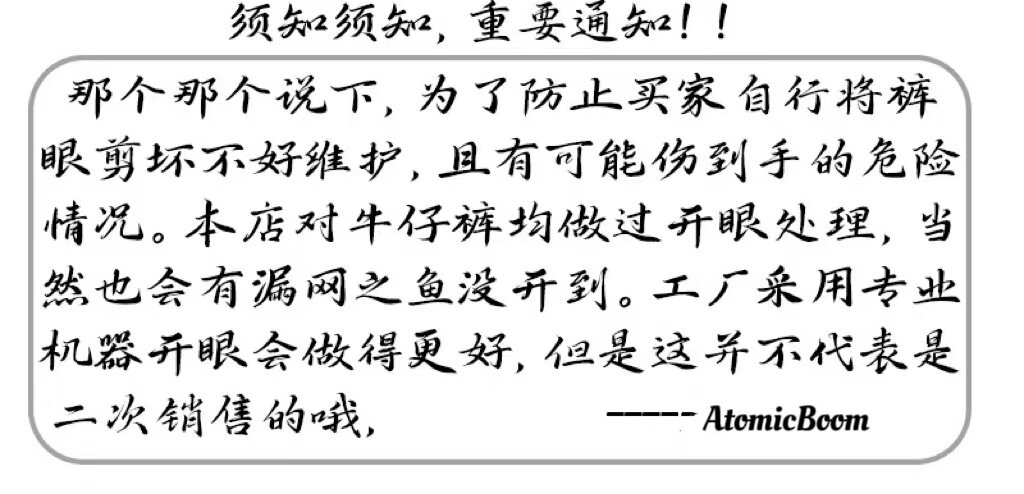 须知须知，重要通知！！
那个那个说下，为了防止买家自行将裤
眼剪坏不好维护，且有可能伤到手的危险
情况。本店对牛仔裤均做过开眼处理，当
然也会有漏网之鱼没开到。工厂采用专业
机器开眼会做得更好，但是这并不代表是
二次销售的哦，
----- AtomicBoom